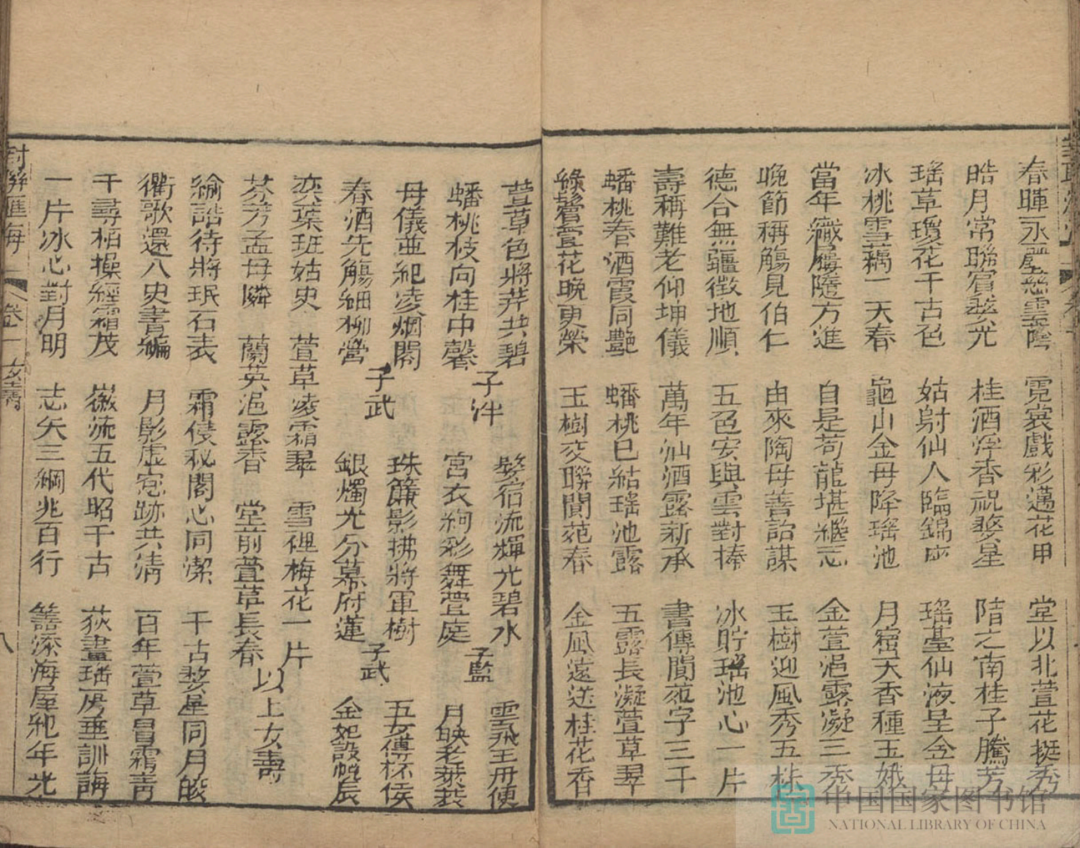 春暉永𨗿慈雲蔭　霓裳戲彩邁花甲　堂以北萱花挺秀
皓月常聯寳婺光　桂酒浮香祝婺星　陔之南桂子騰芳
瑤草瓊花千古色　姑射仙人臨錦席　瑤臺仙液呈金母
冰桃雪藕一天春　龜山金母降瑤池　月窟天香種玉娥
當年織屨隨方進　自是荀龍堪繼志　金萱浥露凝三秀
晚節稱觴見伯仁　由來陶母善詒謀　玉樹迎風秀五株
德合無疆徵地順　五色安輿雲對捧　冰貯瑤池心一片
壽稱難老仰坤儀　萬年仙酒露新承　書傳閬苑字三千
蟠桃春酒霞同艷　蟠桃已結瑤池露　五露長凝萱草翠
綠鬢萱花晚更榮　玉樹交聯閬苑春　金風遠送桂花香
萱草色將芹共碧　婺宿流輝光碧水　雲飛玉冊便
蟠桃枝向桂中馨　子泮　宮衣絢彩舞萱庭　子監　月映老萊裘
母儀亜紀凌烟閣　珠簾影拂將軍樹　五女傳杯侯
春酒先觴細柳營　子武　銀燭光分幕府蓮　子武　金妃設帨辰
奕葉班姑史　萱草凌霜翠　雪裡梅花一片
芬芳孟母隣　蘭英浥露香　堂前萱草長春　以上女壽
綸誥待將珉石表　霜侵秘閣心同潔　千古婺星同月皎
衢歌還入史書編　月影虛窓跡共清　百年萱草冒霜青
千尋柏操經霜茂　徽流五代昭千古　荻畫瑤房垂訓誨
一片冰心對月明　志矢三綱兆百行　籌添海屋紀年光
對聯匯海　卷十　女壽　八
中国国家图书馆
NATIONAL LIBRARY OF CHINA